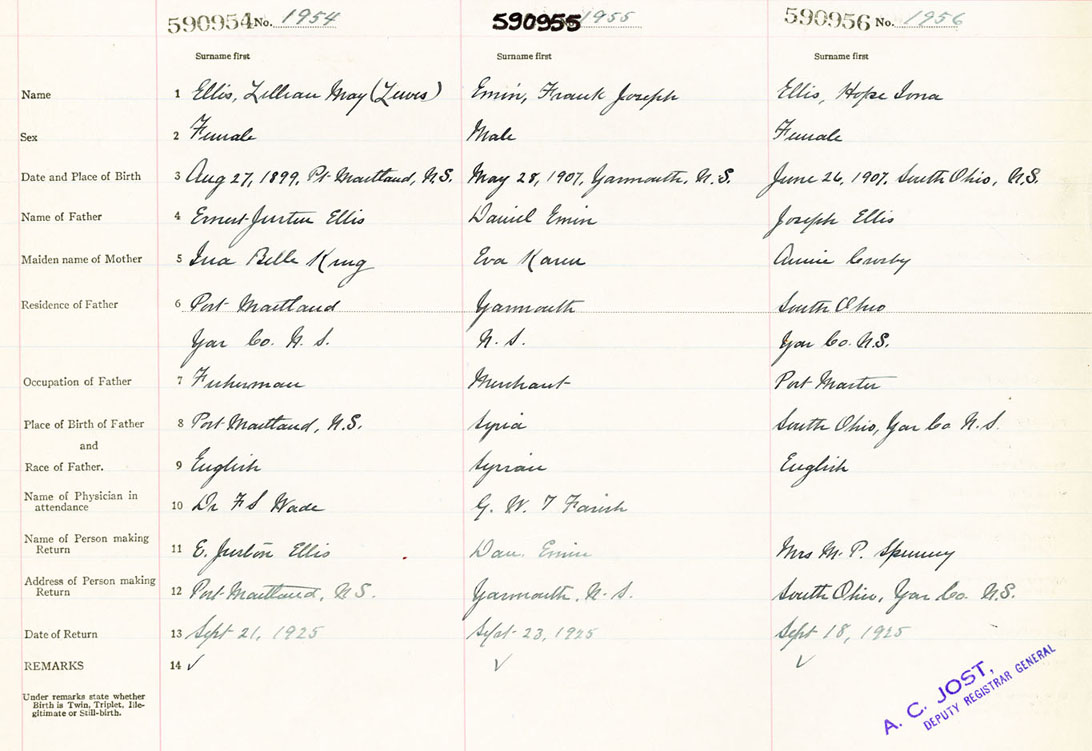 590954 No. 1954 590955 1955 590956 No. 1956
Surname first Surname first Surname first
Name 1 Ellis, Lillian May (Lewis) Emin, Frank Joseph Ellis, Hope Iona
Sex 2 Female Male Female
Date and Place of Birth 3 Aug 27, 1899, Pt Maitland, N.S. May 28, 1907, Yarmouth, N.S. June 26, 1907, South Ohio, N.S.
Name of Father 4 Ernest Ellis Daniel Emin Joseph Ellis
Maiden name of Mother 5 Ina Belle Eva Karen Annie Crosby
Residence of Father 6 Port Maitland Yarmouth South Ohio
Yar Co. N.S. N.S. Yar Co. N.S.
Occupation of Father 7 Fisherman Merchant Port Master
Place of Birth of Father 8 Port Maitland, N.S. Syria South Ohio, Yar Co N.S.
and
Race of Father. 9 English Syrian English
Name of Physician in
attendance 10 Dr F S Wade G. W. T Farish
Name of Person making
Return 11 E. Ellis Dan. Emin Mrs M. P. Spinney
Address of Person making
Return 12 Port Maitland, N.S. Yarmouth, N.S. South Ohio, Yar Co. N.S.
Date of Return 13 Sept 21, 1925 Sept 23, 1925 Sept 18, 1925
REMARKS 14 ✓ ✓ ✓
Under remarks state whether
Birth is Twin, Triplet, Ille-
gitimate or Still-birth.
A. C. JOST,
DEPUTY REGISTRAR GENERAL